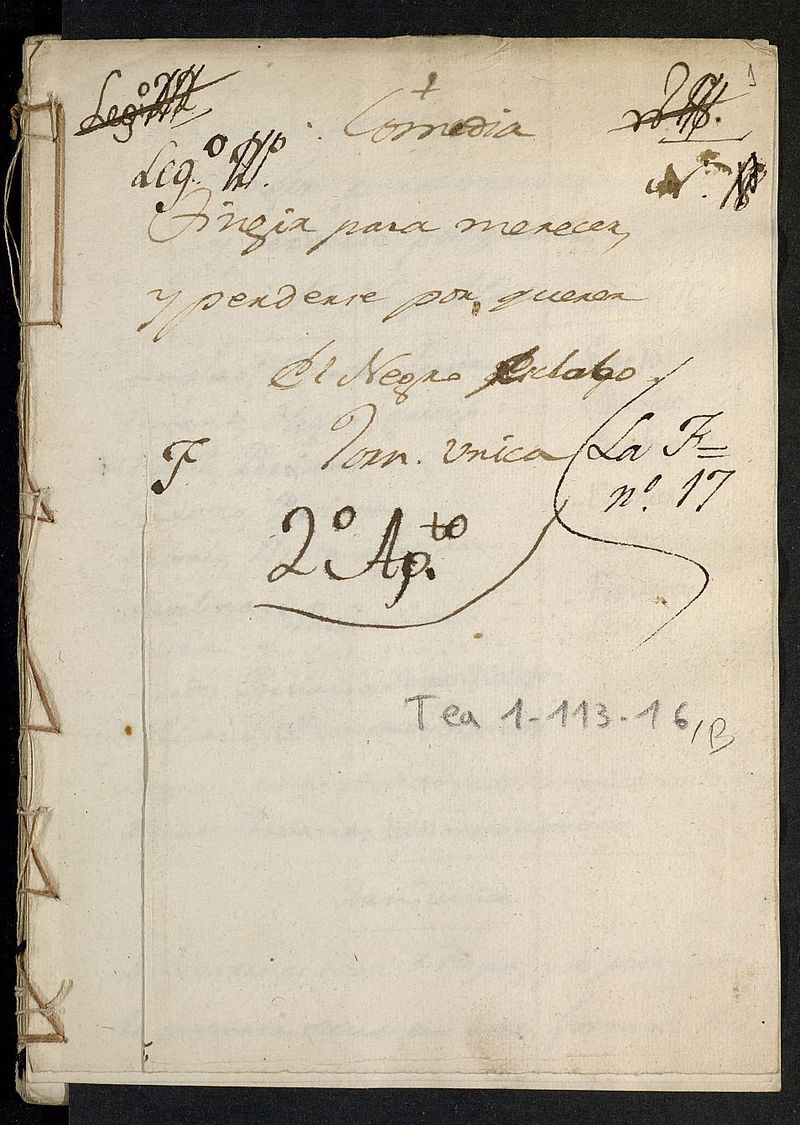 1
Leg.º
Comedia
Leg.º
N.
Fingir para merecer,
y perderse por querer
El Negro Esclabo.
F
Jorn. Vnica
La F=
nº. 17
2º Ap.to
Tea 1-113-16, B